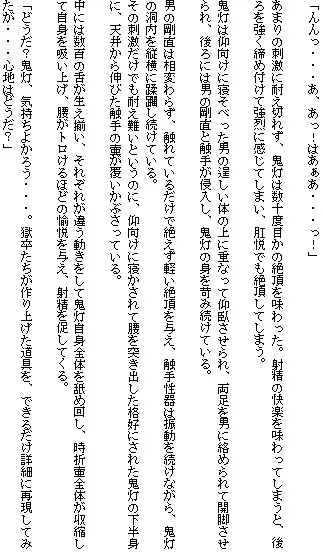 「んんっ・・・あ、あっーはあぁあ・・・っー」
あまりの刺激に耐え切れず、鬼灯は数十度目かの絶頂を味わった。射精の快楽を味わってしまうと、後
ろを強く締め付けて強烈に感じてしまい、肛悦でも絶頂してしまう。
鬼灯は仰向けに寝そべった男の逞しい体の上に重なって仰臥させられ、両足を男に絡められて開脚させ
られ、後ろには男の剛直と触手が侵入し、鬼灯の身を苛み続けている。
男の剛直は相変わらず、触れているだけで絶えず軽い絶頂を与え、触手性器は振動を続けながら、鬼灯
の洞内を縦横に蹂躙し続けている。
その刺激だけでも耐え難いというのに、仰向けに寝かされて腰を突き出した格好にされた鬼灯の下半身
に、天井から伸びた触手の壷が覆いかぶさっている。
中には数百の舌が生え揃い、それぞれが違う動きをして鬼灯自身全体を舐め回し、時折壷全体が収縮し
て自身を吸い上げ、腰がトロけるほどの愉悦を与え、射精を促してくる。
「どうだ？鬼灯、気持ちよかろう・・・。獄卒たちが作り上げた道具を、できるだけ詳細に再現してみ
たが・・・心地はどうだ？」